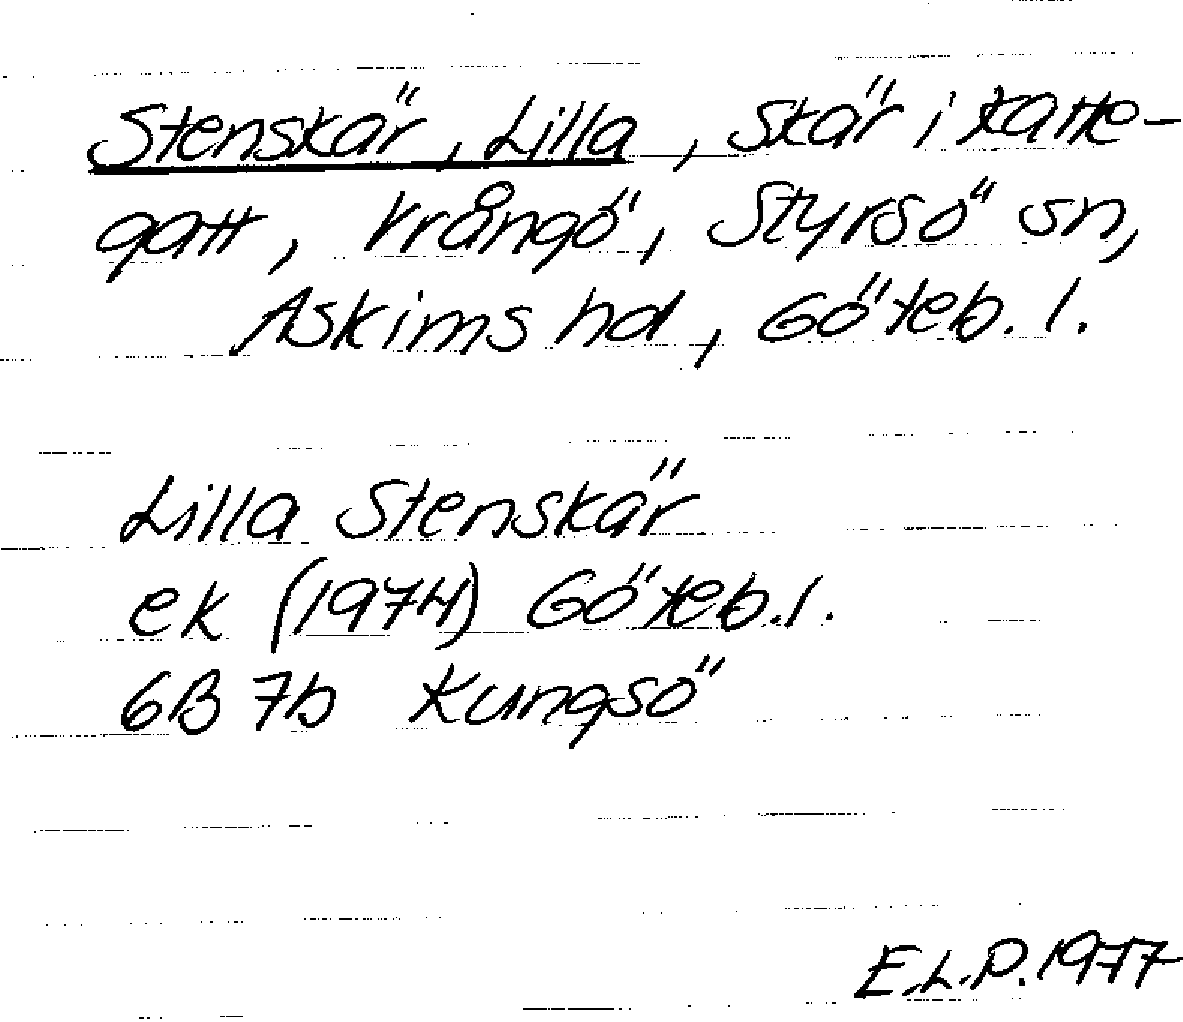 Stenskär, Lilla, skär i Katte-
gatt, Vrångö, Styrsö sn,
Askims hd, Göteb. l.
Lilla Stenskär
ek (1974) Göteb. l.
6B 7b Kungsö
E.L.P. 1977